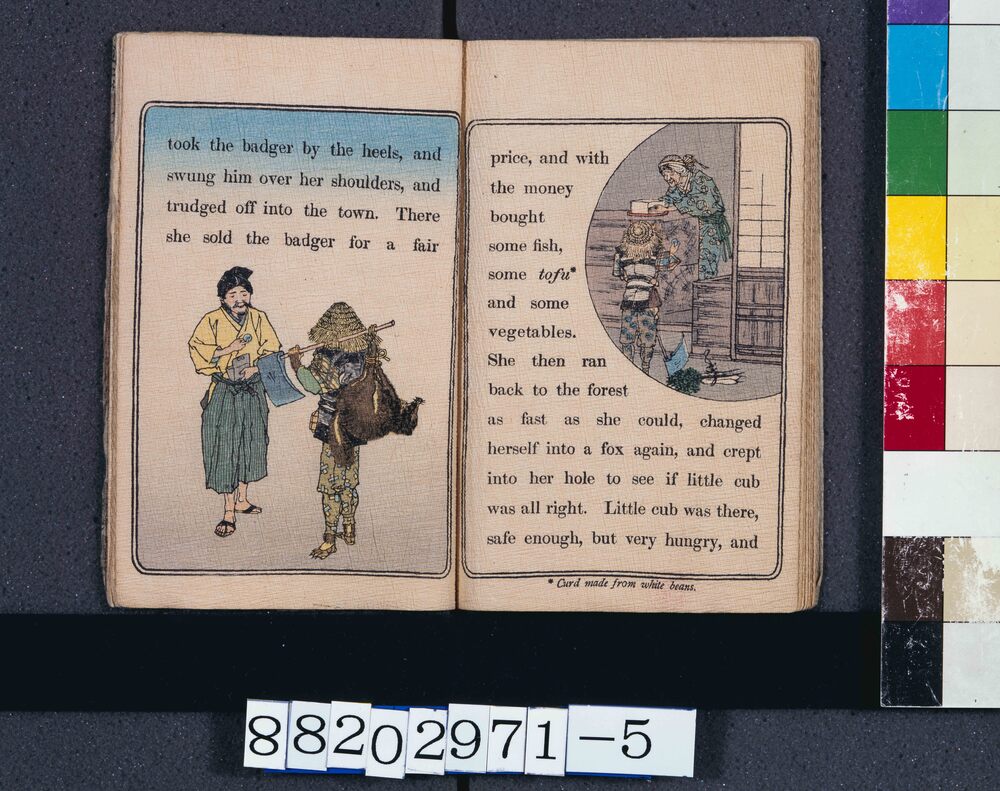 took the badger by the heels, and
swung him over her shoulders, and
trudged off into the town. There
she sold the badger for a fair
price, and with
the money
bought
some fish,
some tofu*
and some
vegetables.
She then ran
back to the forest
as fast as she could, changed
herself into a fox again, and crept
into her hole to see if little cub
was all right. Little cub was there,
safe enough, but very hungry, and
* Curd made from white beans.
88202971-5